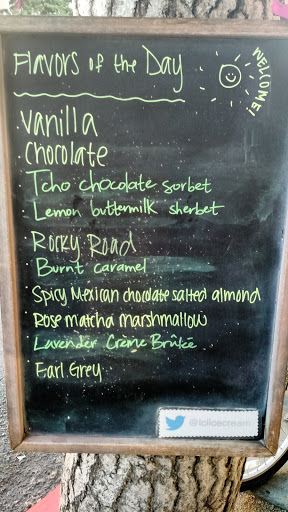 Flavors of the Day
WELCOME!
Vanilla
Chocolate
Tcho chocolate sorbet
Lemon buttermilk sherbet
Rocky Road
Burnt caramel
Spicy Mexican chocolate salted almond
Rose matcha marshmallow
Lavender Crème Brûlée
Earl Grey
@iciicecream